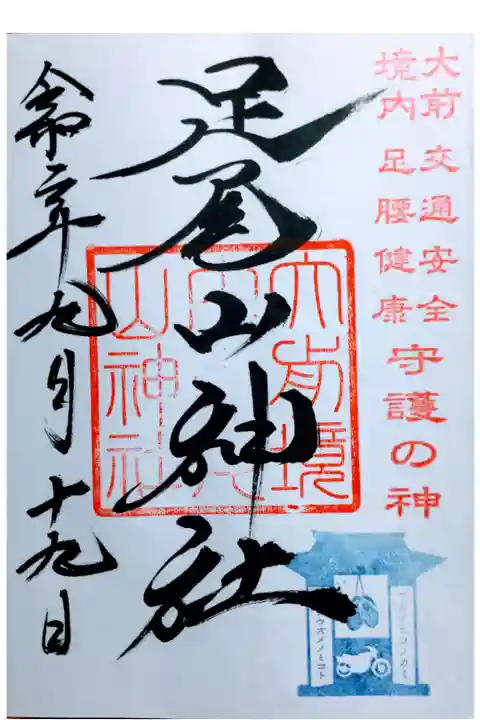 大前 交通安全
境内 足腰健康
守護の神
足尾山神社
大前境
内足尾
山神社
令和二年九月十九日